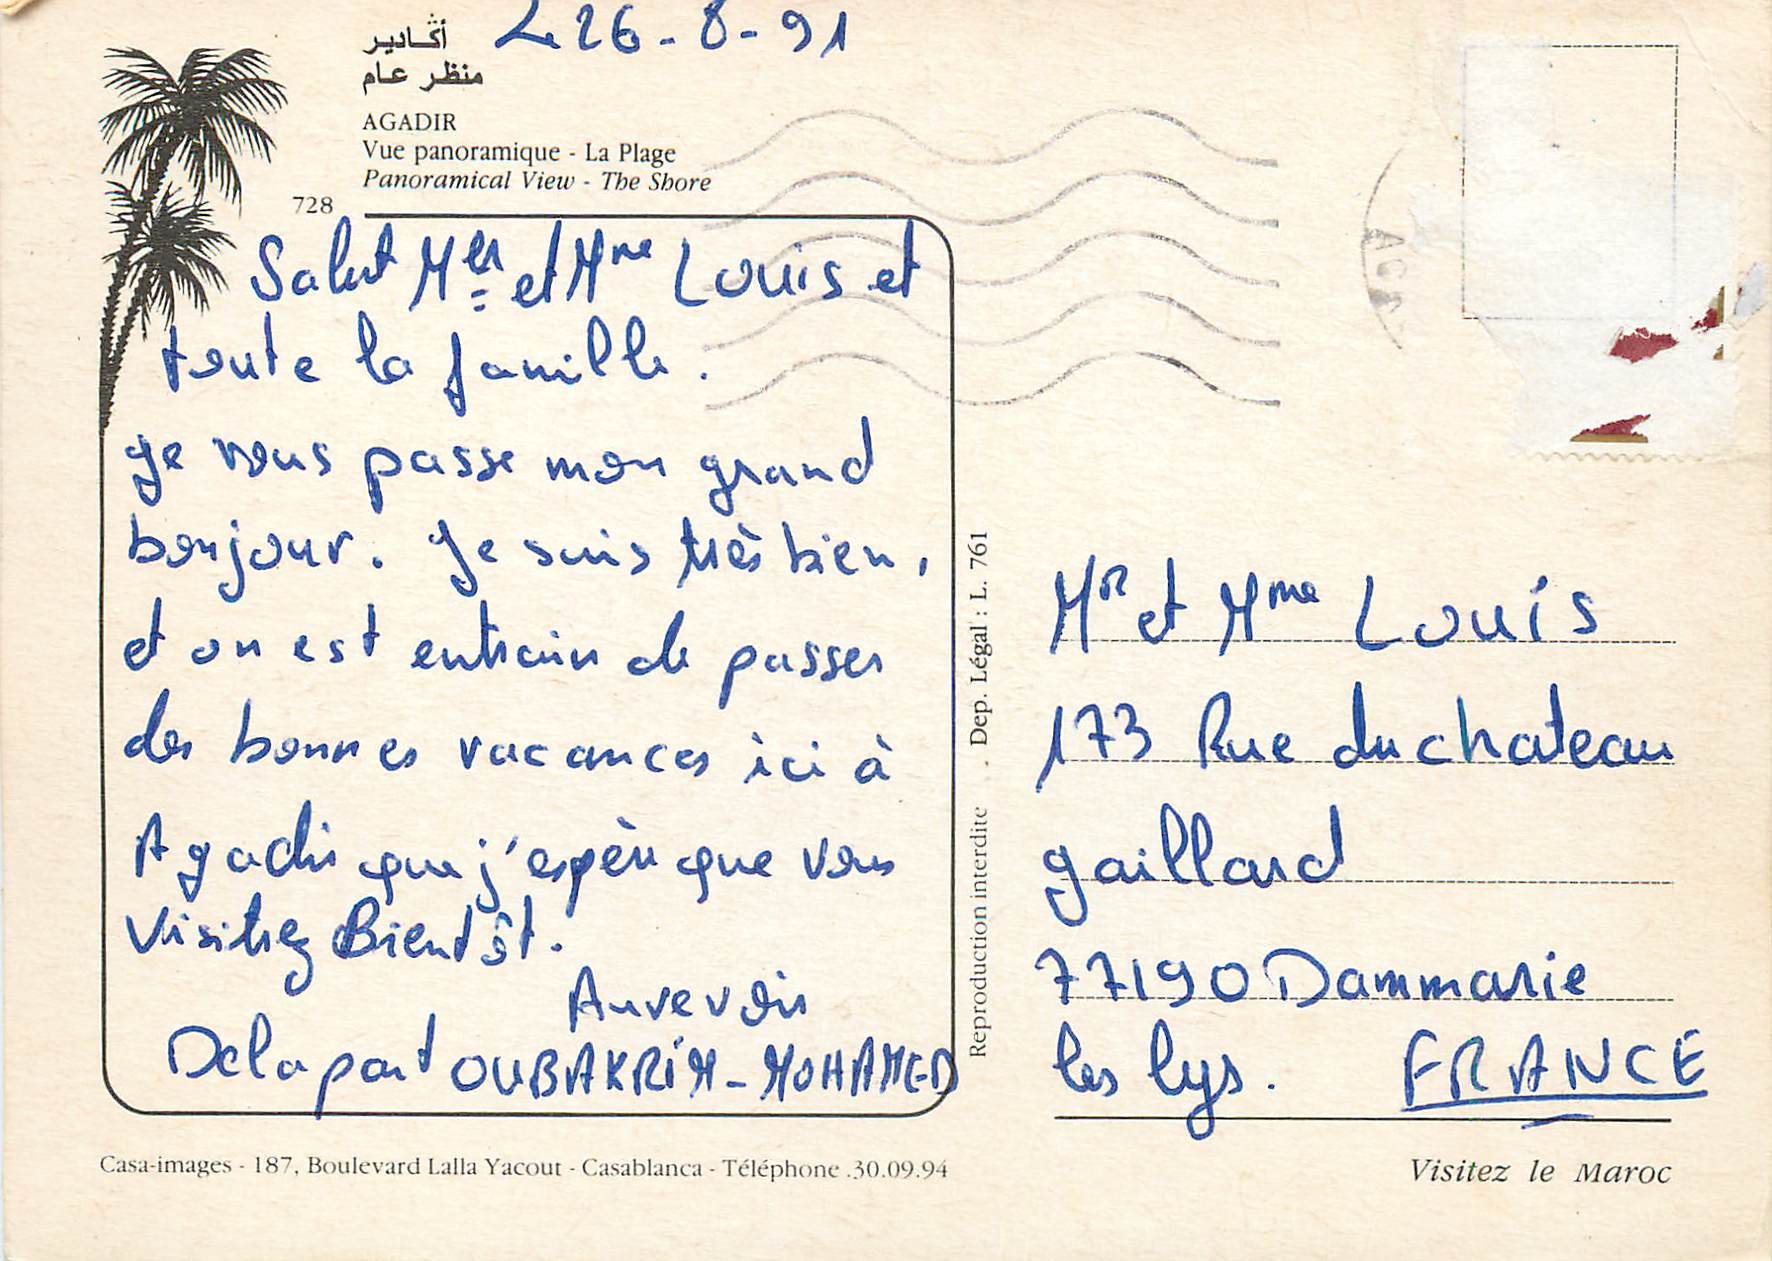 أكادير
منظر عام
26-8-91
AGADIR
Vue panoramique - La Plage
Panoramical View - The Shore
728
Salut Mer et Mme Louis et
toute la famille.
Je vous passe mon grand
bonjour. Je suis très bien,
et on est entrain de passer
des bonnes vacances ici à
Agadir que j'espère que vous
visitiez Bientôt.
Aurevoir
De la part OUBAKRIM-MOHAMED
Reproduction interdite . . Dep. Légal : L. 761
Mr et Mme Louis
173 Rue du chateau
gaillard
77190 Dammarie
les lys. FRANCE
Casa-images - 187, Boulevard Lalla Yacout - Casablanca - Téléphone .30.09.94
Visitez le Maroc